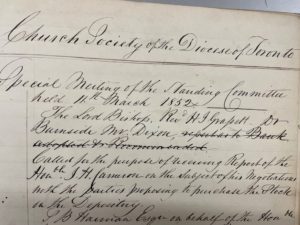 Church Society of the Diocese of Toronto
Special Meeting of the Standing Committee
held 11th March 1852
The Lord Bishop, Revd H J Grasett Dr
Burnside Mr Dixon, reports to Bank
adopted & Recommended
Called for the purpose of receiving Report of the
Honble J. H. Cameron on the Subject of his Negotiations
with the parties proposing to purchase the Stock
in the Depository
J B Harman Esqr on behalf of the Hon